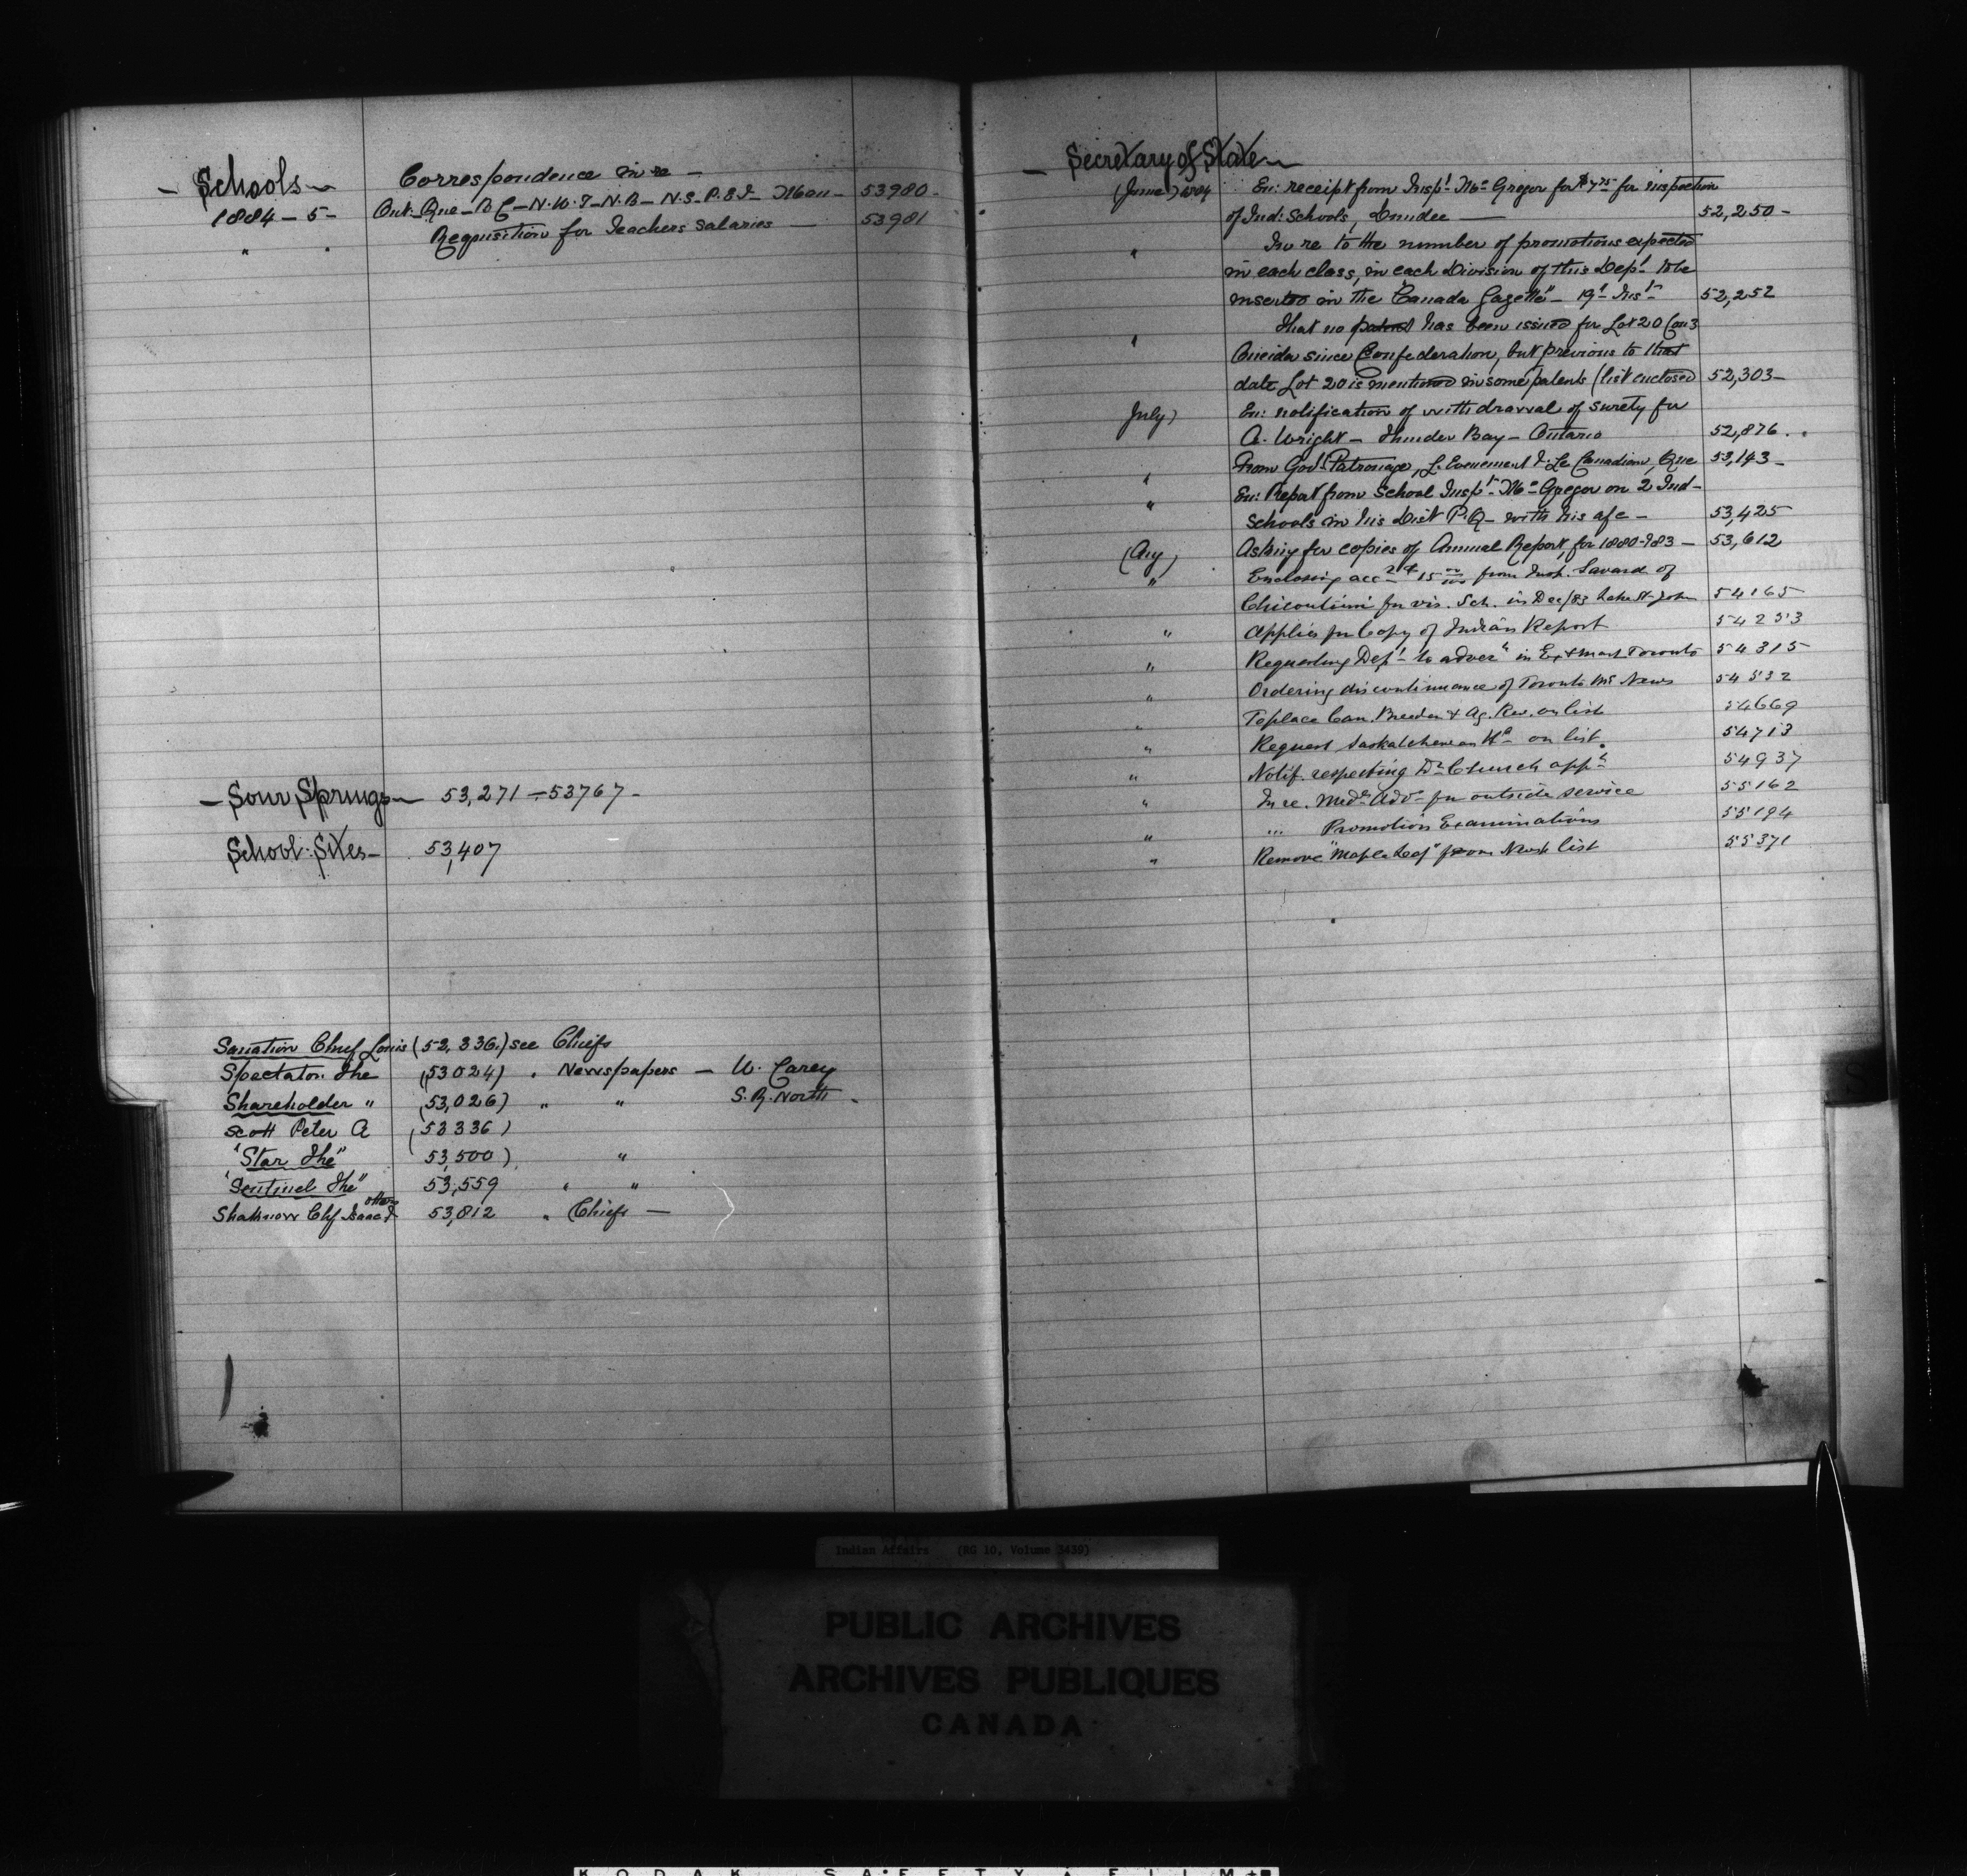 — Schools —
Correspondence in re —
1884 – 5 – Ont – Que – B C – N.W.T – N.B – N.S. P.E.I – Man – 53980 -
" " Requisition for Teachers salaries — 53981
— Sour Springs — 53,271 – 53767 -
School Sites – 53,407
Chief Louis (52,336.) see Chiefs
Spectator The (53024) " Newspapers — W. Carey
Shareholder " (53,026) " " S. R. North -
Scott Peter A (53336)
"Star The" 53,500) "
"Sentinel The" 53,559 " "
Chf Isaac & others 53,812 " Chiefs —
— Secretary of State —
(June) 1884 En: receipt from Inspt Mc Gregor for $7.75 for inspection
of Ind: Schools, Dundee — 52,250 -
" In re to the number of promotions expected
in each class, in each Division of this Dept to be
inserted in the "Canada Gazette" – 19t Inst 52,252
" That no patent has been issued for Lot 20 Con 3
Oneida since Confederation, but previous to that
date Lot 20 is mentioned in some patents (list enclosed 52,303 -
July) En: notification of withdrawal of surety for
A. Wright – Thunder Bay – Ontario 52,876 . .
" From Govt Patronage, L'Evenement & Le Canadien, Que 53,143 -
" En: Report from School Inspt Mc Gregor on 2 Ind –
Schools in his Dist P.Q – with his a/c – 53,425
(Aug) Asking for copies of Annual Report, for 1880-783 – 53,612
" Enclosing acc from Insp. Savard of
Chicoutimi for vis. Sch. in Dec/83 Lake St John 54165
" Applies for Copy of Indian Report 54253
" Requesting Dept to adver in Toronto 54315
" Ordering discontinuance of Toronto News 54532
" To place Can. Breeder & Ag. Rev. on list 54669
" Request Saskatchewan Hd on list. 54713
" Notif. respecting Dr Church appt 54937
" In re. Medl Advr for outside service 55162
" ... Promotion Examinations 55194
" Remove "Maple Leaf" from list 55371
S
Indian Affairs (RG 10, Volume 3439)
PUBLIC ARCHIVES
ARCHIVES PUBLIQUES
CANADA
KODAK SAFETY FILM